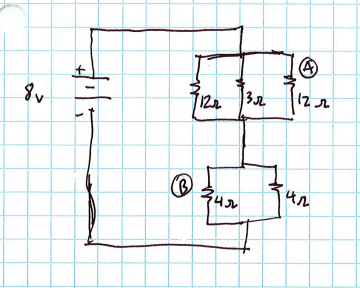 +
8v
-
-
Ⓐ
12Ω 3Ω 12Ω
Ⓑ
4Ω 4Ω